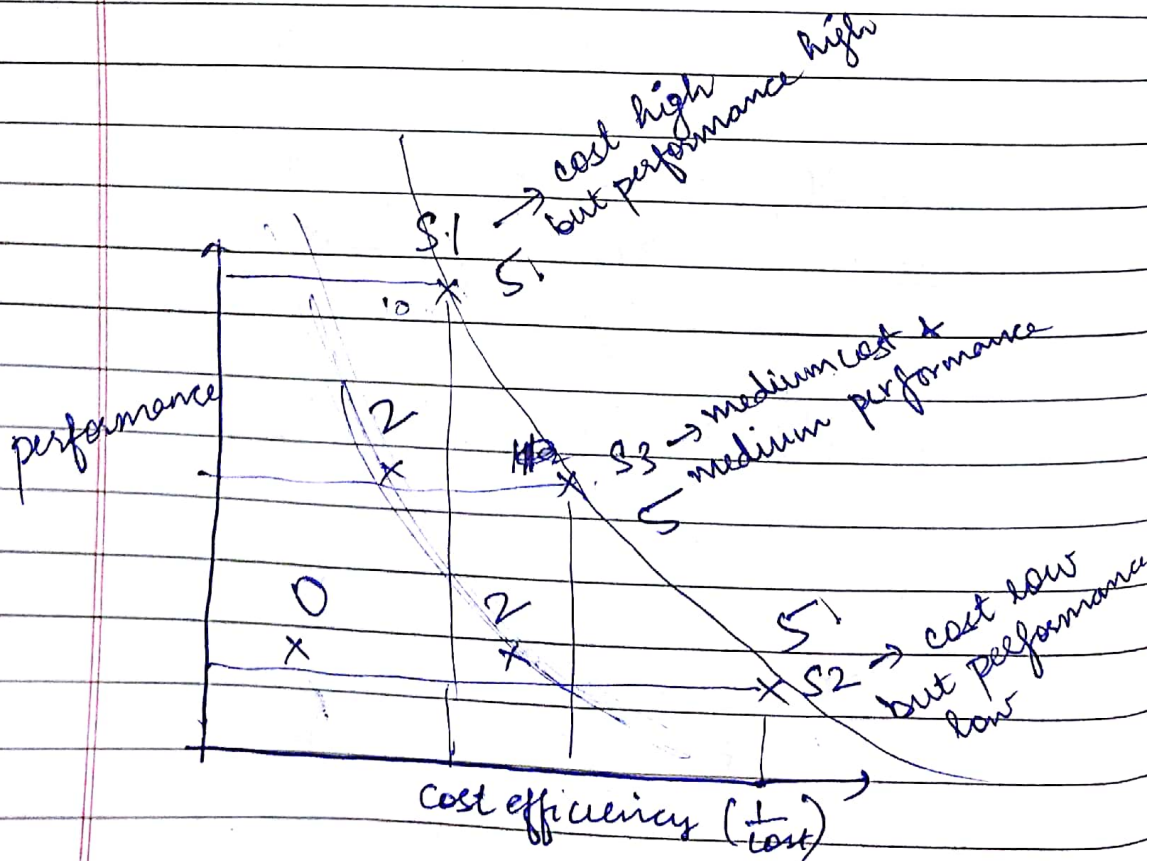 S1 → cost high
but performance high
5
10
performance
2
S3 → medium cost &
medium performance
5
0
2
5
S2 → cost low
but performance
low
cost efficiency (1/cost)